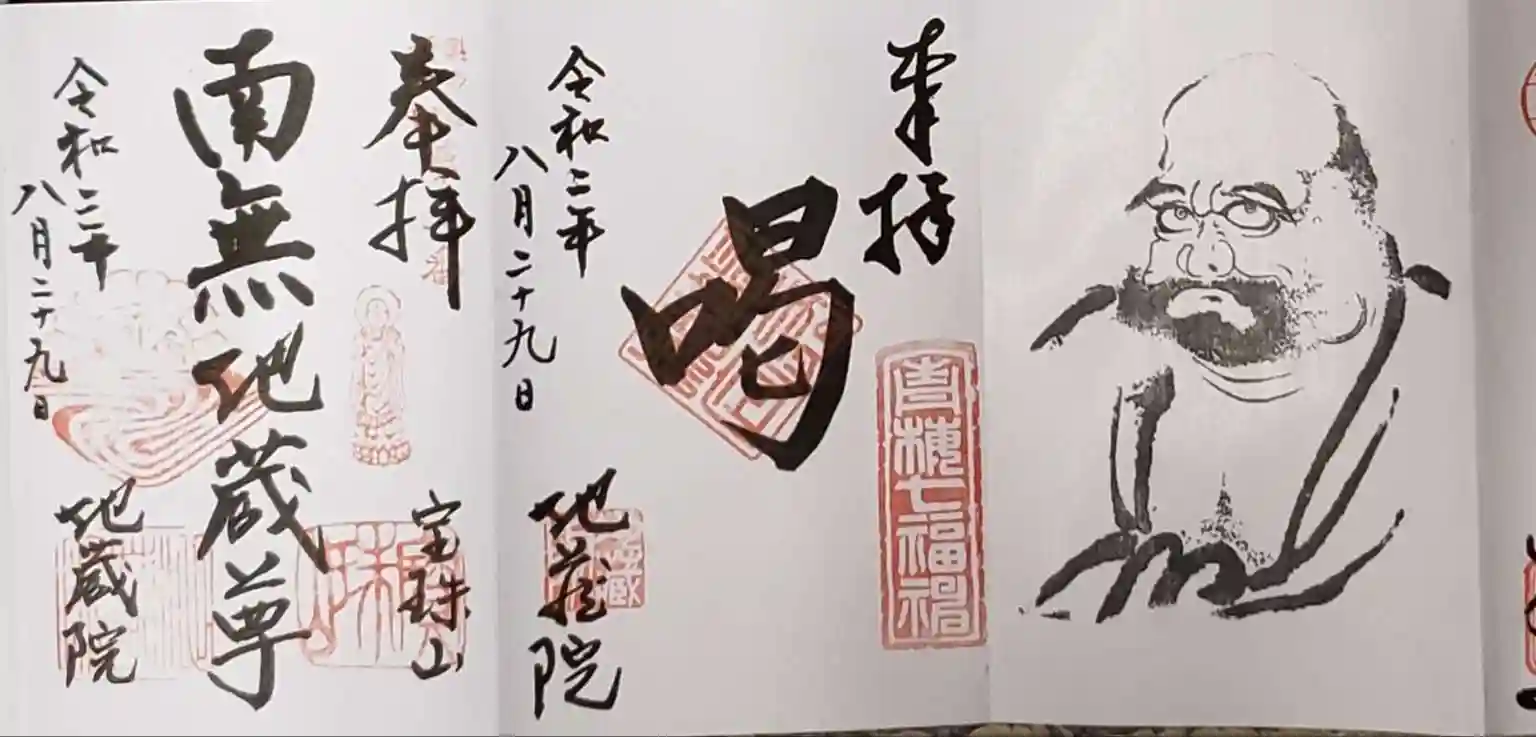 奉拝
青梅七福神
喝
令和二年
八月二十九日
地蔵院
奉拝
宝珠山
南無地蔵尊
令和二年
八月二十九日
地蔵院